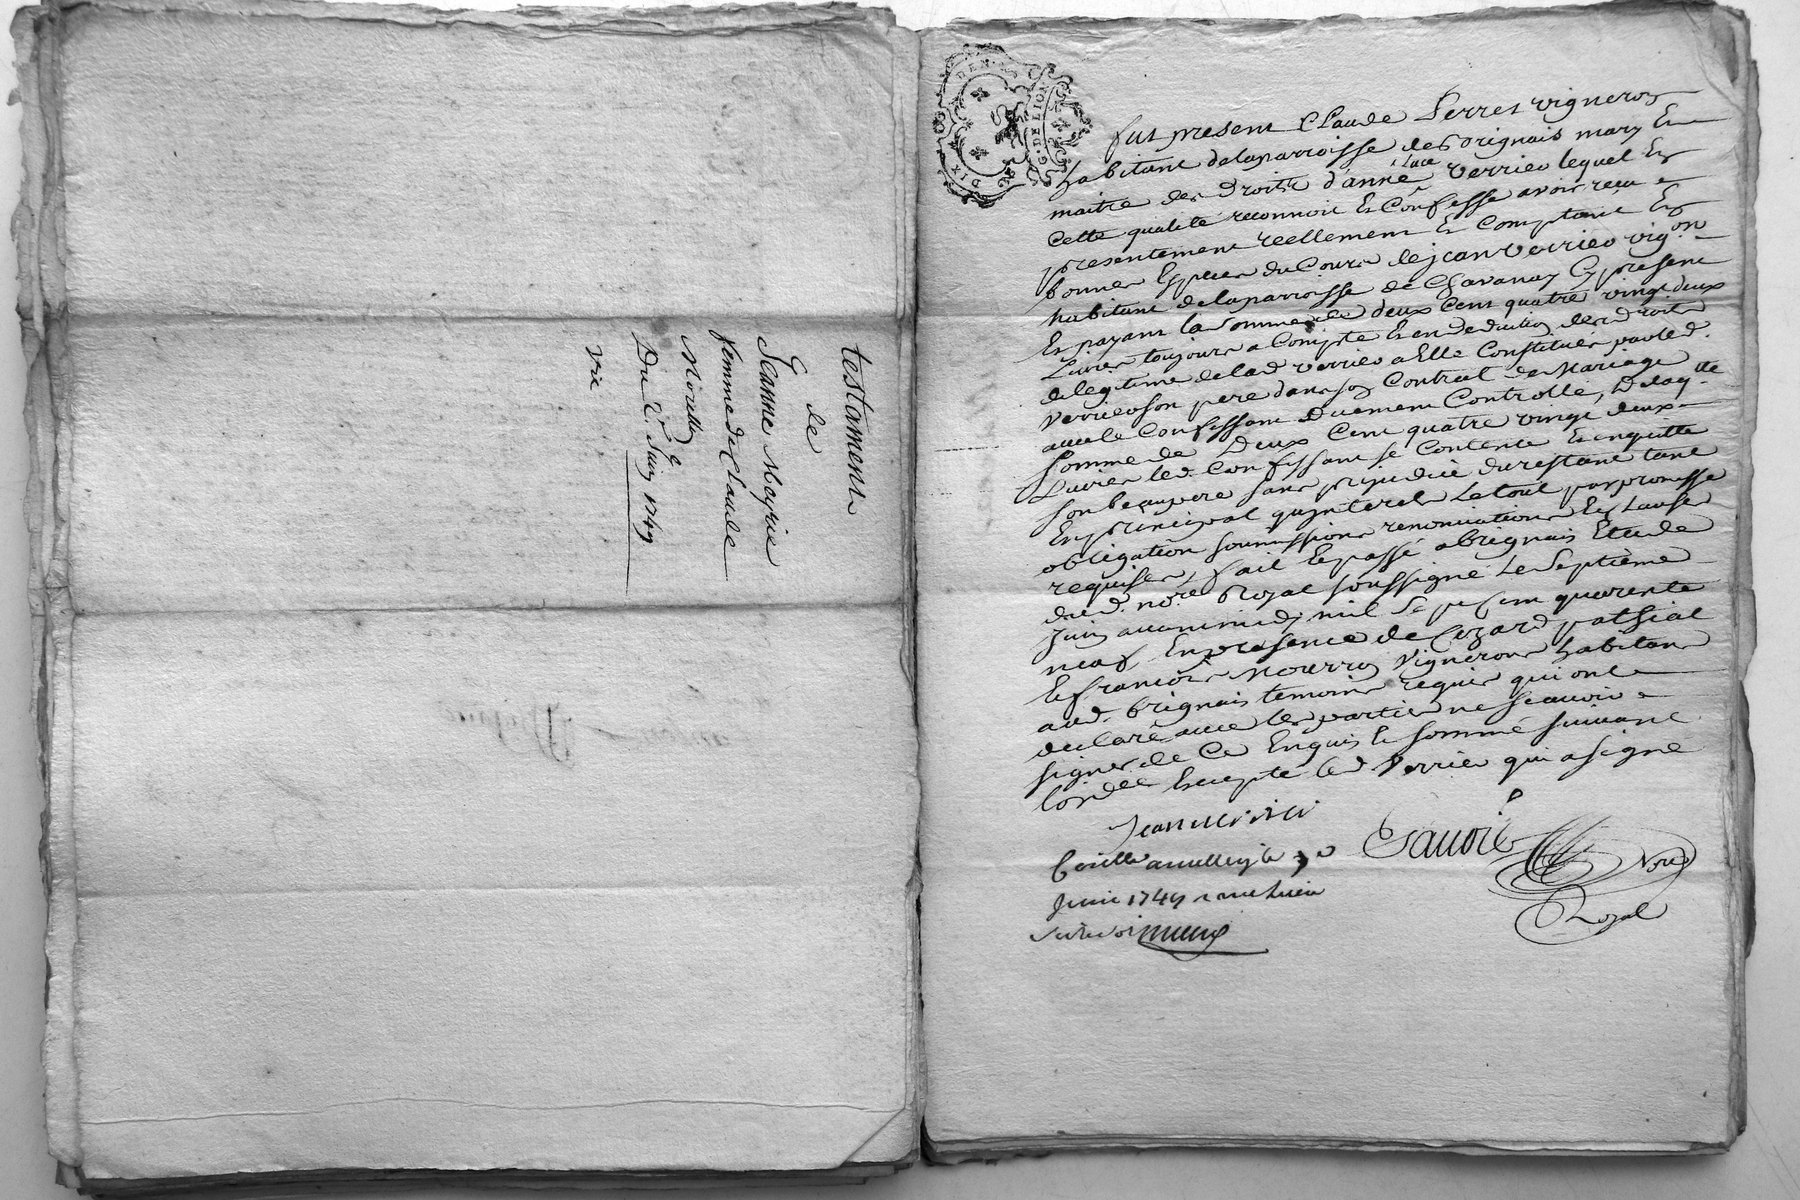 testament
de
Jeanne Mayrie
femme de Claude
Morette
Du 2e Juin 1749
vie
DIX DEN
G. DE LION
fut present Claude Perret vigneron
habitant delaparroisse des Brignais mary Et
maitre des droits d'anne Verrieu lequel En
Cette qualité reconnoit Et Confesse avoir receu
presentement reellement Et Comptant En
bonnes Especes du Cours de jean Verrieu vigon
habitant delaparroisse de Chavanay Cy present
Et payant la Somme de deux Cent quatre vingt deux
Livres toujours a Compte Et en deduction des droits
de legitime de lad verrieu a Elle Constitues par led.
Verrieu son pere dans son Contrat de Mariage
avec le Confessant Duement Controllé, Delaqlle
Somme de Deux Cent quatre vingt deux
Livres led. Confessant se Contente Et en quitte
son beaupere sans prejudice du restant tant
En principal qu'interets Le tout par promesse
obligation soumissions renonciations Et Clauses
requises, fait Et passé a Brignais Etude
dud. nore Royal soussigné Le Septième
Juin avant midy mil Sept Cent quarente
neuf En presence de Cezard
Et francois Mourron Vignerons habitans
aud. Brignais temoins requis qui ont
declaré avec les parties ne scavoir
signer de Ce Enquis Et sommé suivant
lordce Excepté led Verrieu qui a signe
Jean verrieu
Juin 1749
Nore
Royal